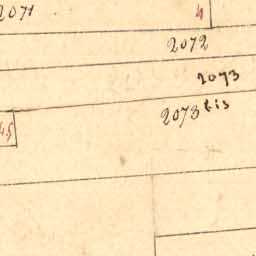 2071
4
2072
2073
2073 bis